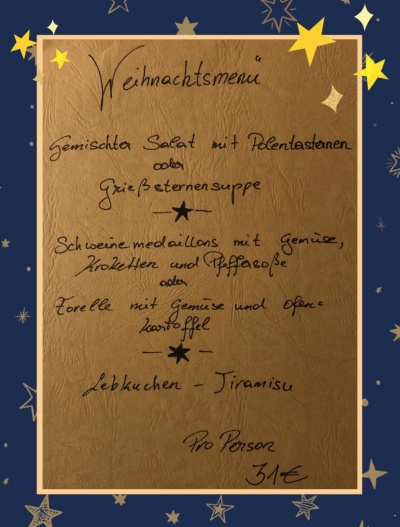 Weihnachtsmenü
Gemischter Salat mit Polentasternen
oder
Grießsternensuppe
Schweinemedaillons mit Gemüse,
Kroketten und Pfeffersoße
oder
Forelle mit Gemüse und Ofen=
kartoffel
Lebkuchen - Tiramisu
Pro Person
31€